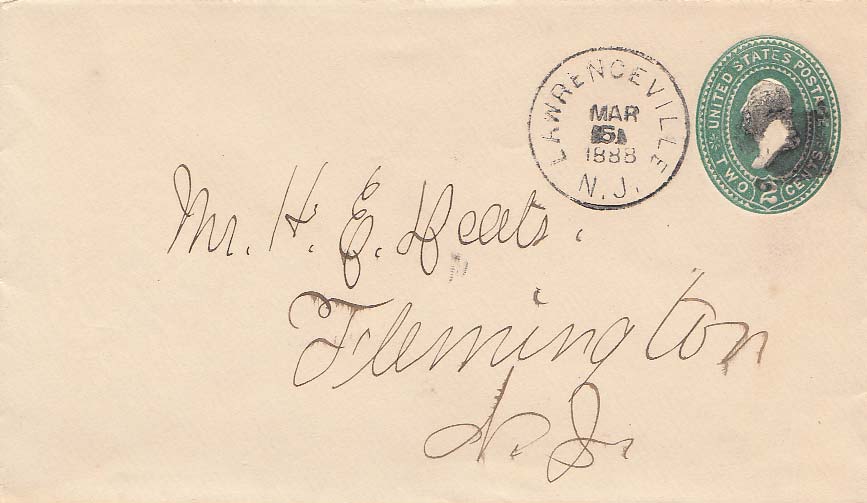 LAWRENCEVILLE
MAR
5
1888
N.J.
UNITED STATES POSTA
TWO 2 CENTS
Mr. H. E. Deats.
Flemington
N. J.